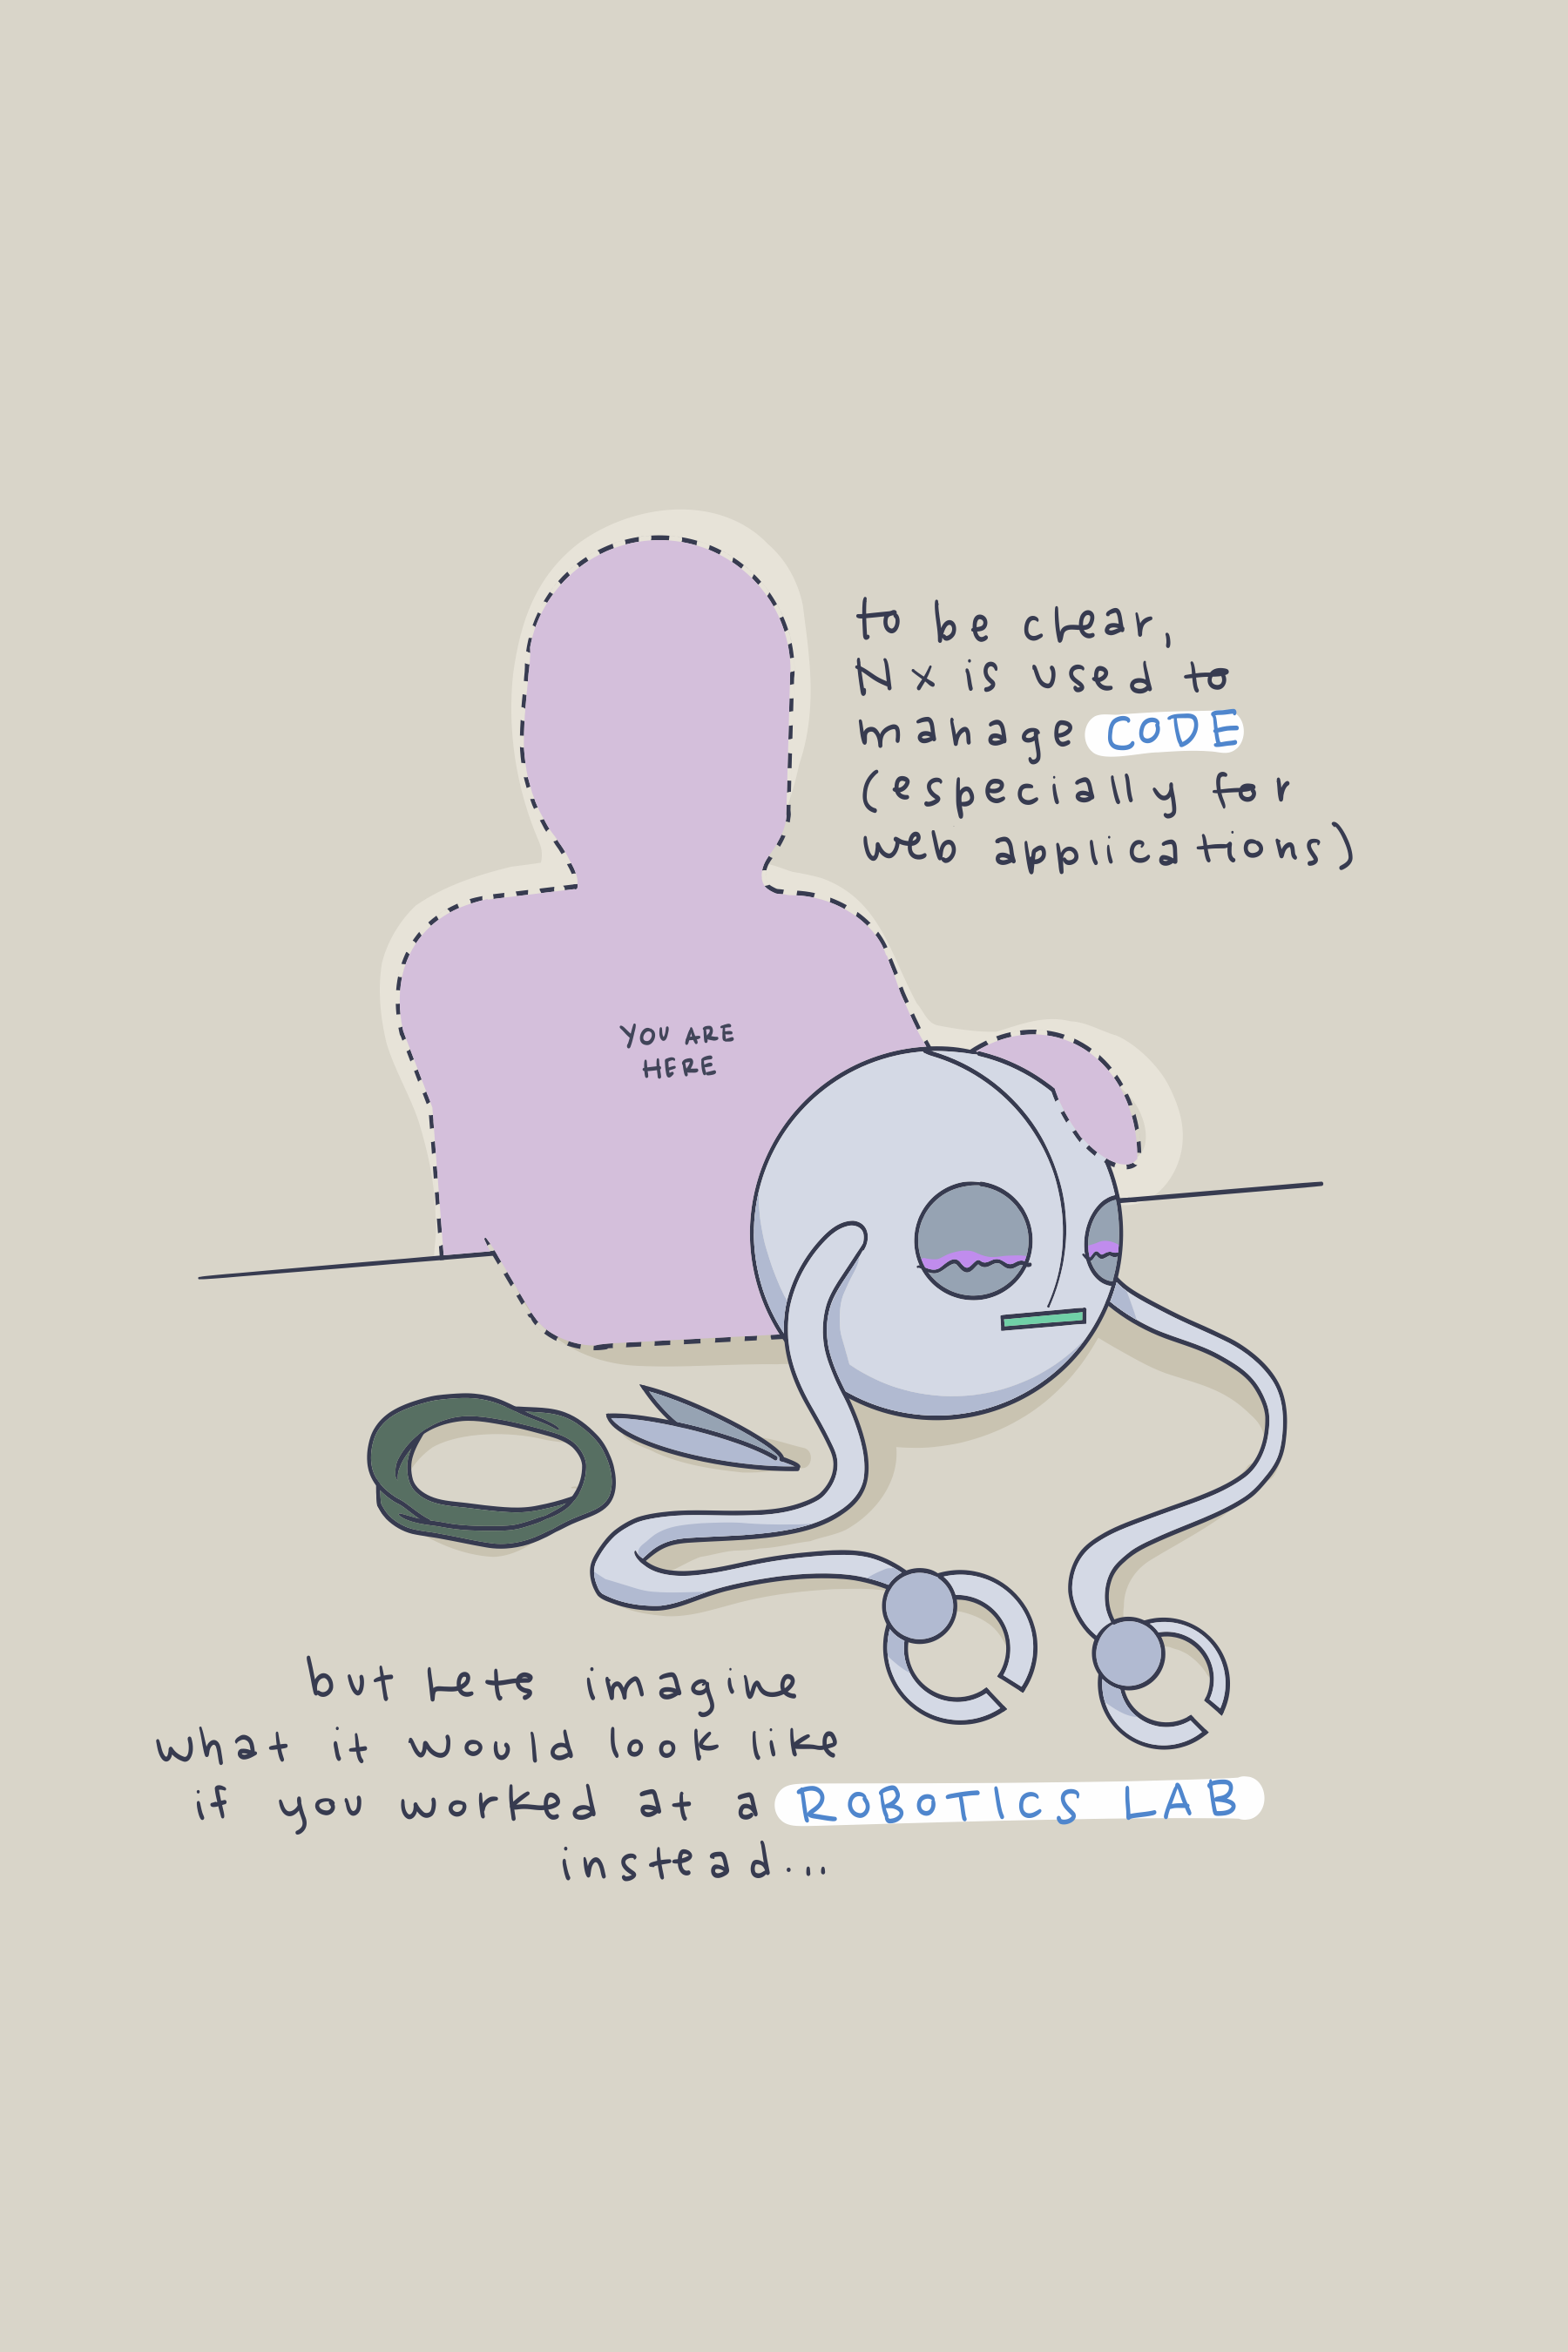 to be clear,
Nx is used to
manage CODE
(especially for
web applications)
YOU ARE
HERE
but lets imagine
what it would look like
if you worked at a ROBOTICS LAB
instead...